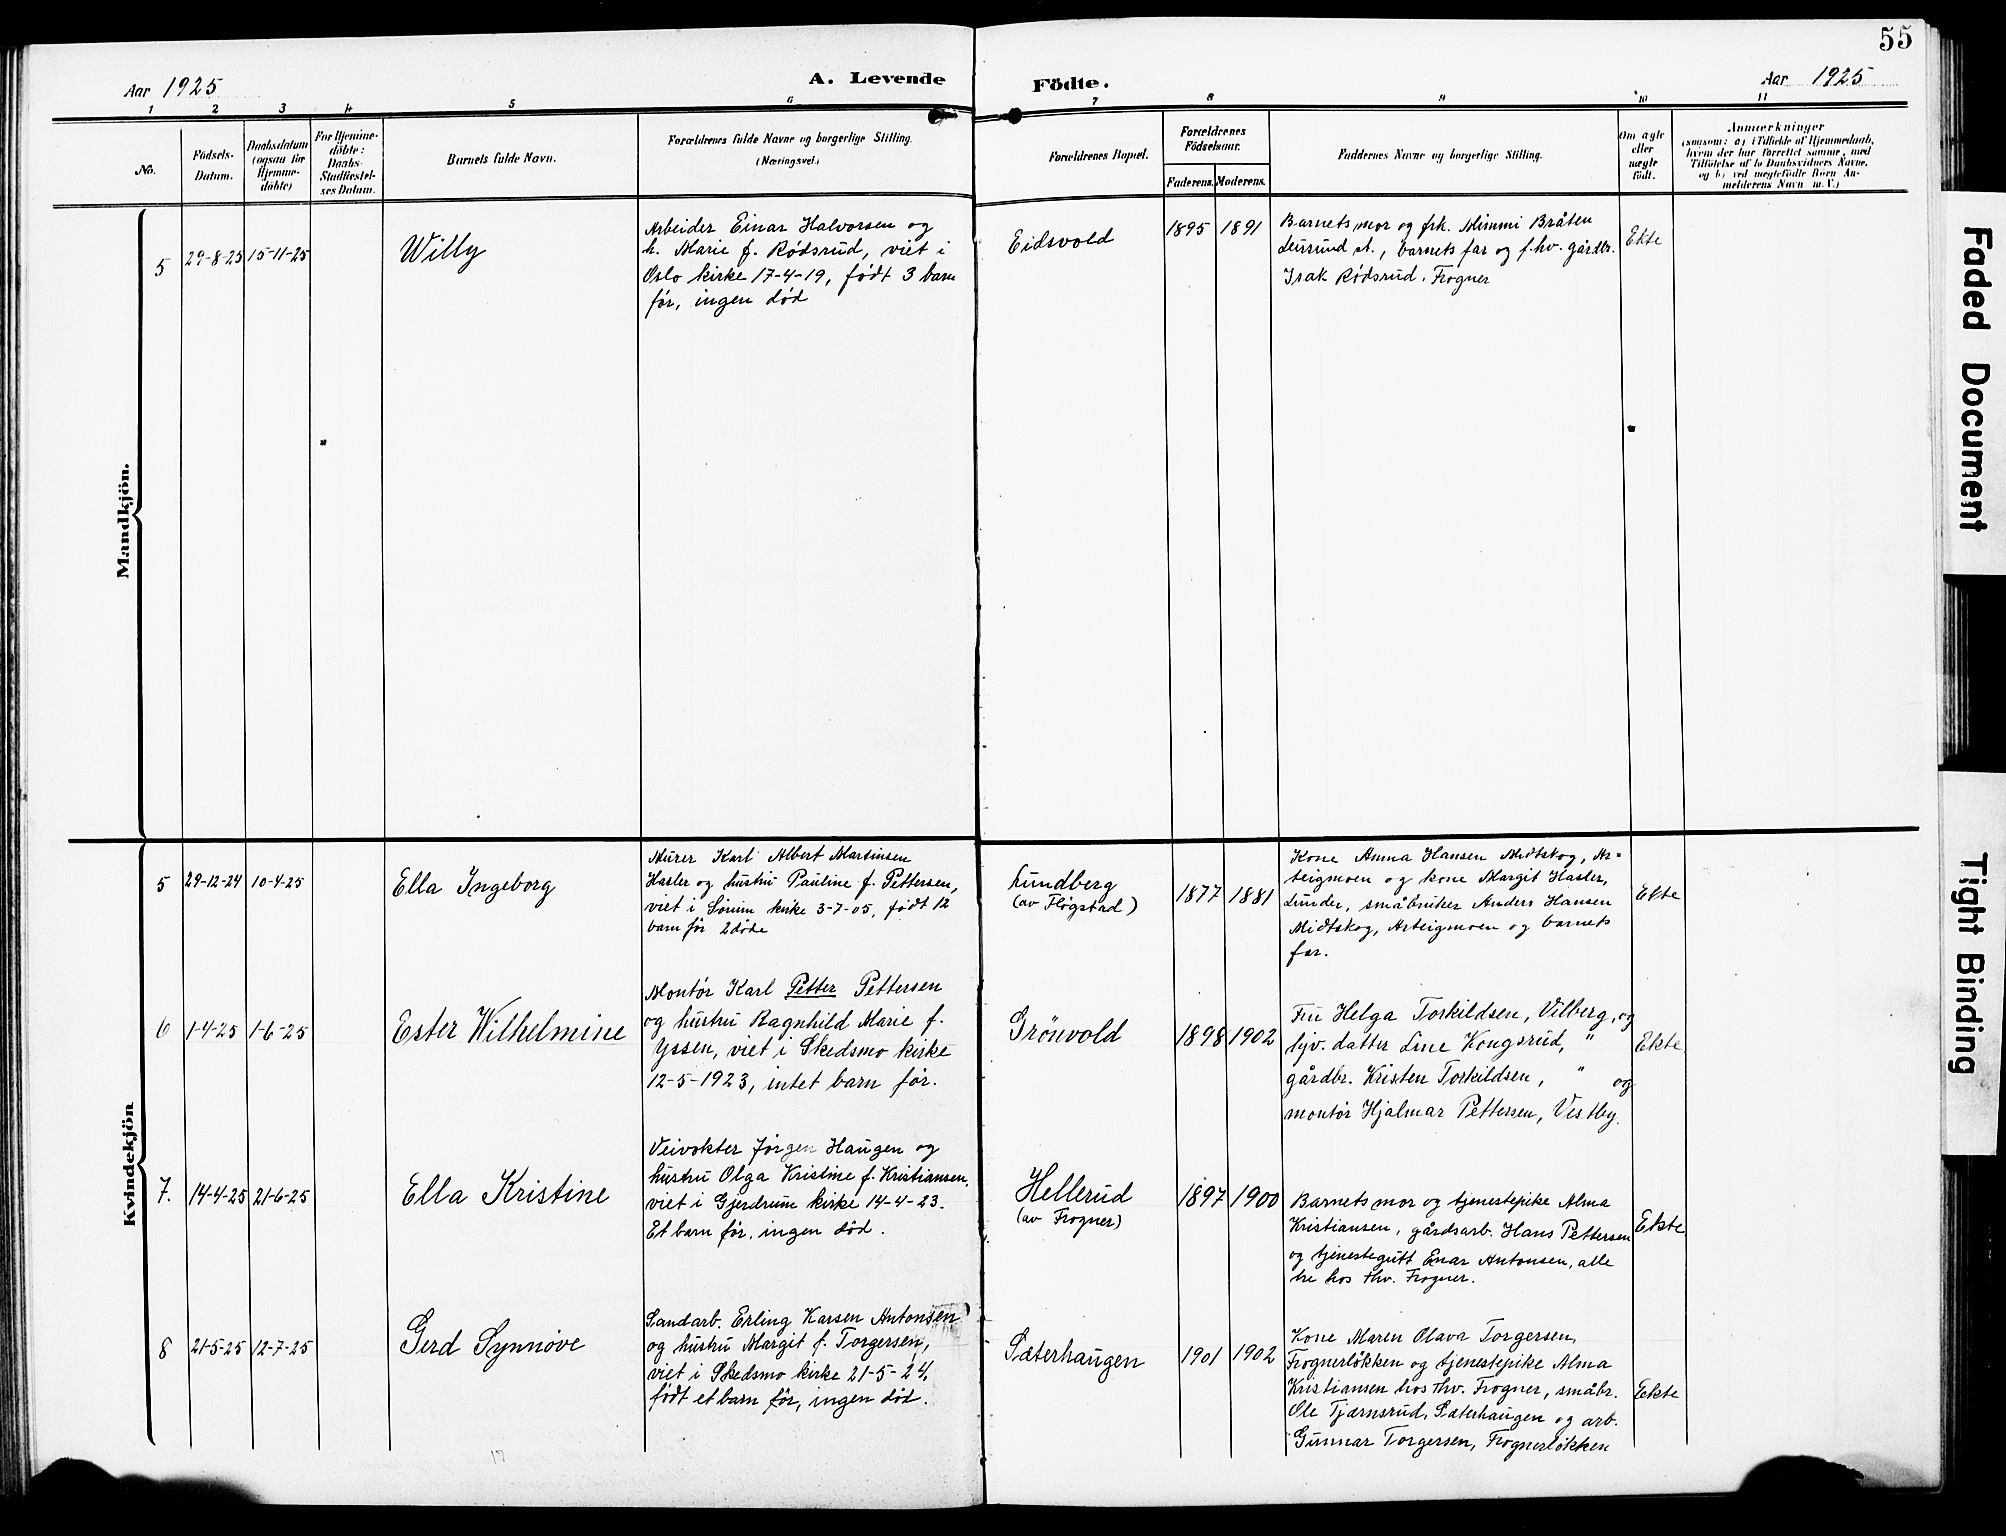 55
Aar 1925
A. Levende
Födte.
Aar 1925
1 2 3 4 5 6 7 8 9 10 11
No.
Födsels-
Datum.
Daabsdatum
(ogsaa for
Hjemme-
döbte)
For Hjemme-
döbte:
Daabs-
Stadfæstel-
ses Datum.
Barnets fulde Navn.
Forældrenes fulde Navne og borgerlige Stilling.
(Næringsvei.)
Forældrenes Bopæl.
Forældrenes
Födselsaar.
Faderens. Moderens.
Faddernes Navne og borgerlige Stilling.
Om ægte
eller
uægte
födt.
Anmærkninger
(saasom: a) i Tilfælde af Hjemmedaab,
hvem der har forrettet samme, med
Tilföielse af to Daabsvidners Navne,
og b) ved uægtefödte Börn An-
melderens Navn m. V.)
Mandkjön.
5
29-8-25
15-11-25
Willy
Arbeider Einar Halvorsen og
h. Marie f. Rødsrud, viet i
Oslo kirke 17-4-19, født 3 barn
før, ingen død
Eidsvold
1895
1891
Barnets mor og frk. Mimmi Bråten
Leirsund st., barnets far og f.hv. gårdbr.
Isak Rødsrud. Frogner
Ekte
Kvindekjön
5
29-12-24
10-4-25
Ella Ingeborg
Murer Karl Albert Martinsen
Hasler og hustru Pauline f. Pettersen,
viet i Sørum kirke 3-7-05, født 12
barn før 2 døde
Lundberg
(av Fløgstad)
1877
1881
Kone Anna Hansen Midtskog, Ar-
teigmoen og kone Margit Hasler,
Lunder, småbruker Anders Hansen
Midtskog, Arteigmoen og barnets
far.
Ekte
6
1-4-25
1-6-25
Ester Wilhelmine
Montør Karl Petter Pettersen
og hustru Ragnhild Marie f.
Yssen, viet i Skedsmo kirke
12-5-1923, intet barn før.
Grönvold
1898
1902
Fru Helga Torkildsen, Vilberg, og
hjv. datter Line Kongsrud, "
gårdbr. Kristen Torkildsen, " og
montør Hjalmar Pettersen, Vestby.
Ekte
7.
14-4-25
21-6-25
Ella Kristine
Veivokter Jørgen Haugen og
hustru Olga Kristine f. Kristiansen,
viet i Gjerdrum kirke 14-4-23.
Et barn før, ingen død.
Hellerud
(av Frogner)
1897
1900
Barnets mor og tjenestepike Alma
Kristiansen, gårdsarb. Hans Pettersen
og tjenestegutt Enar Antonsen, alle
tre hos thv. Frogner.
Ekte
8
21-5-25
12-7-25
Gerd Synnøve
Sandarb. Erling Karsen Antonsen
og hustru Margit f. Torgersen,
viet i Skedsmo kirke 21-5-24,
født et barn før, ingen død.
Sæterhaugen
1901
1902
Kone Maren Olava Torgersen,
Frognerløkken og tjenestepike Alma
Kristiansen hos thv. Frogner, småbr.
Ole Tjærnsrud, Sæterhaugen og arb.
Gunnar Torgersen, Frognerløkken
Ekte
17
Faded Document
Tight Binding